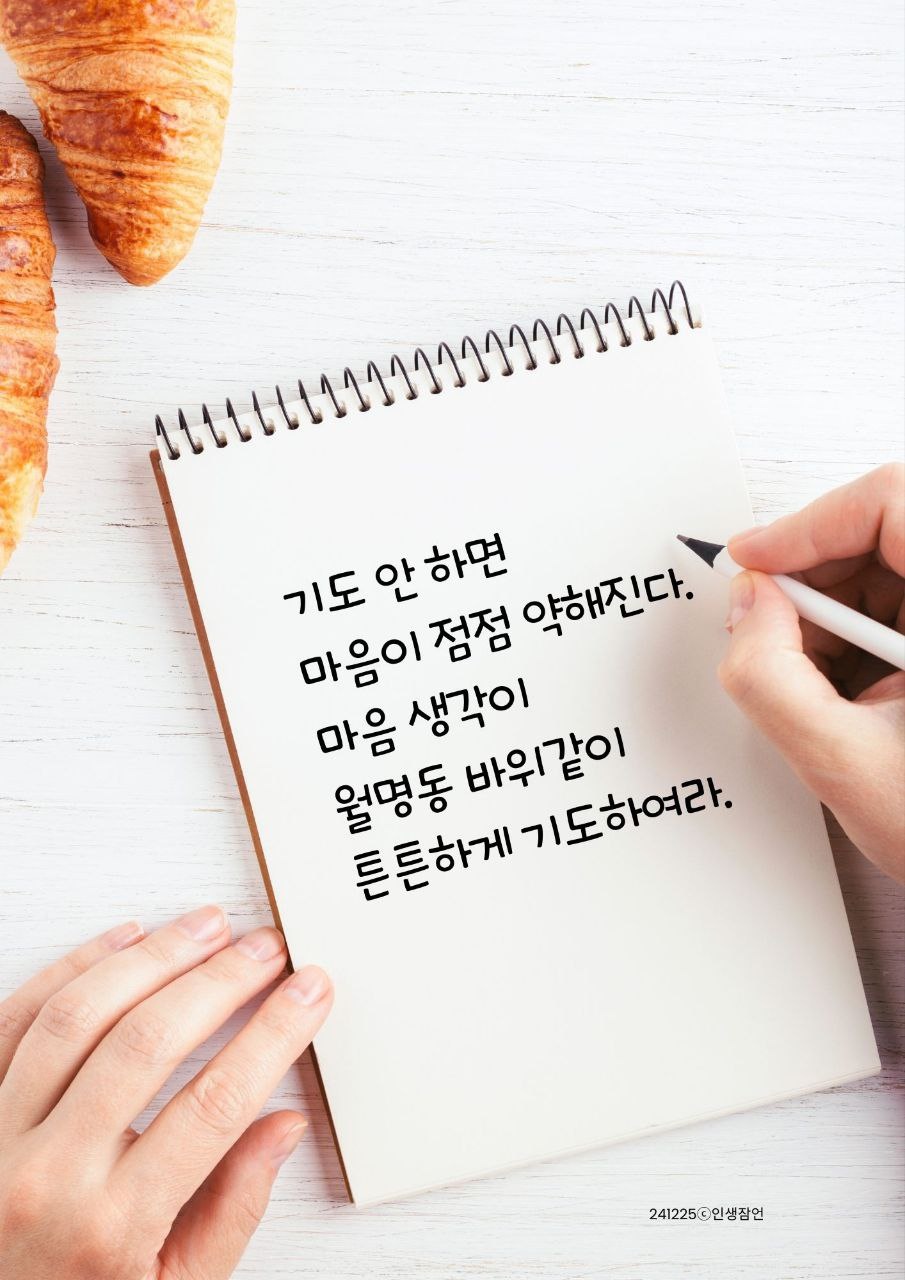 기도 안 하면
마음이 점점 약해진다.
마음 생각이
월명동 바위같이
튼튼하게 기도하여라.
241225ⓒ인생잠언